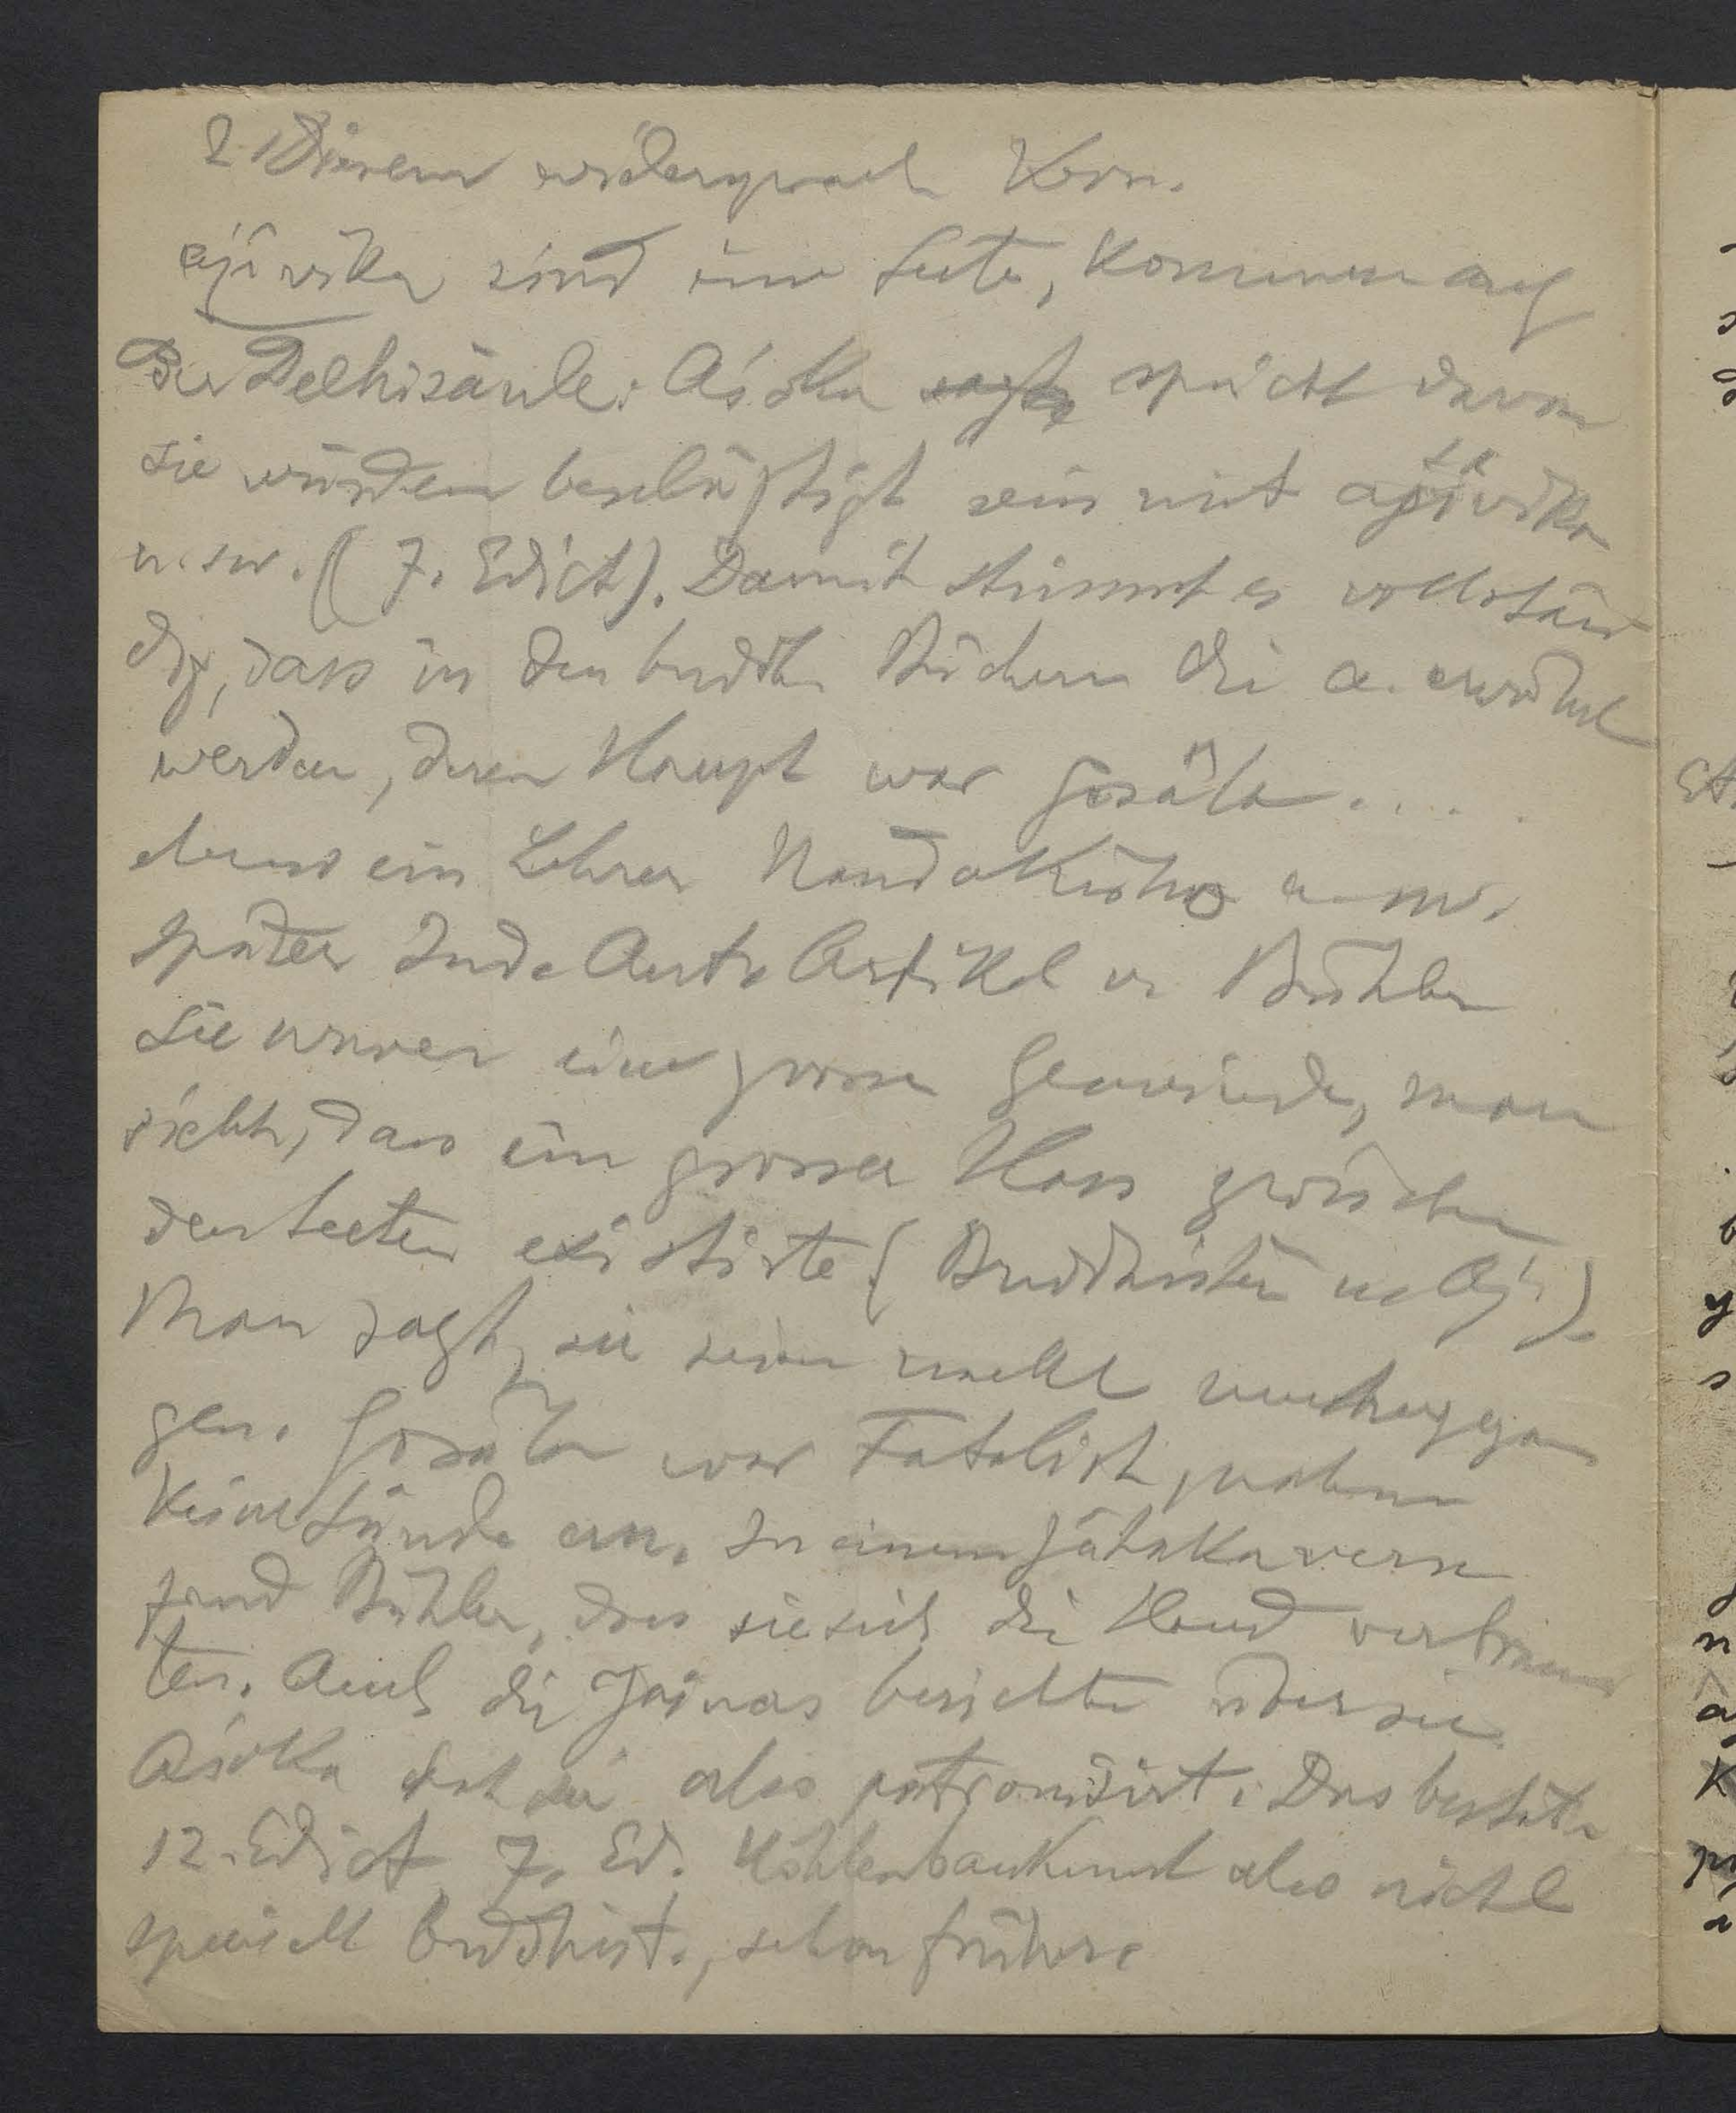 2. Diesem widersprach Kern.
ajîvika sind eine Secte, kommen auf
der Delhisäule. Aśoka sagte spricht davon
sie würden beschäftigt sein mit ajîvika
u.sw. (7. Edict). Damit stimmt es vollstän
dig, dass in den buddh. Büchern die a. erwähnt
werden, deren Haupt war Gosâla . . . .
ebenso ein Lehrer Nanda u.sw.
später Ind. Ant. Artikel v. Bühler
Sie waren eine grosse Gemeinde, man
sieht, dass ein grosser Hass zwischen
den Secten existirte (Buddhisten u. Aj.)
Man sagt, sie seien nackt
gen. Gosâla war Fatalist, nahm
keine Sünde an. In einem Jâtakaverse
fand Bühler, dass sie sich die Hand verbrann
ten. Auch die Jainas berichten über sie
Aśoka hat sie also patronisirt. Das bestät.
12. Edict 7. Ed. Höhlenbaukunst also nicht
speciell buddhist., schon früher.